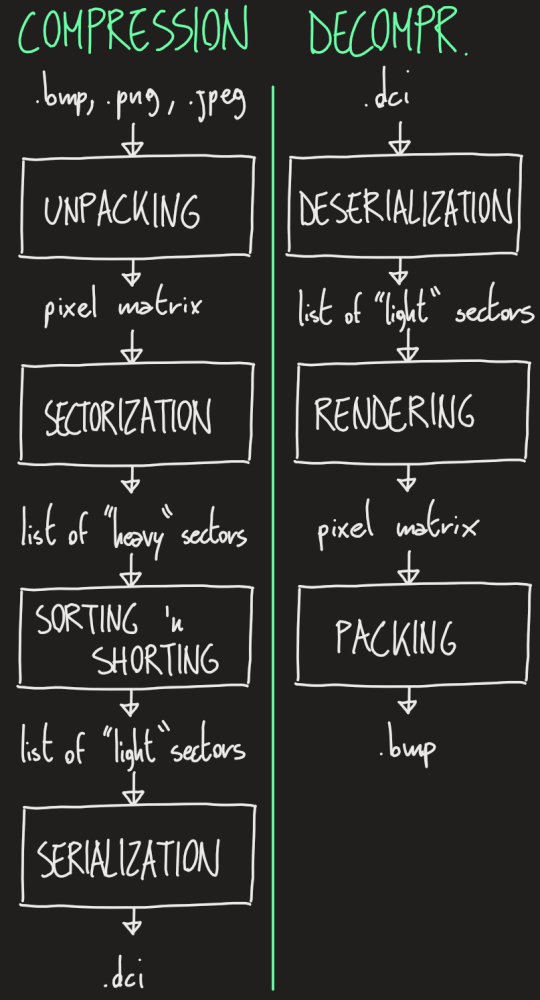 COMPRESSION
.bmp, .png, .jpeg
UNPACKING
pixel matrix
SECTORIZATION
list of "heavy" sectors
SORTING 'n
SHORTING
list of "light" sectors
SERIALIZATION
.dci
DECOMPR.
.dci
DESERIALIZATION
list of "light" sectors
RENDERING
pixel matrix
PACKING
.bmp